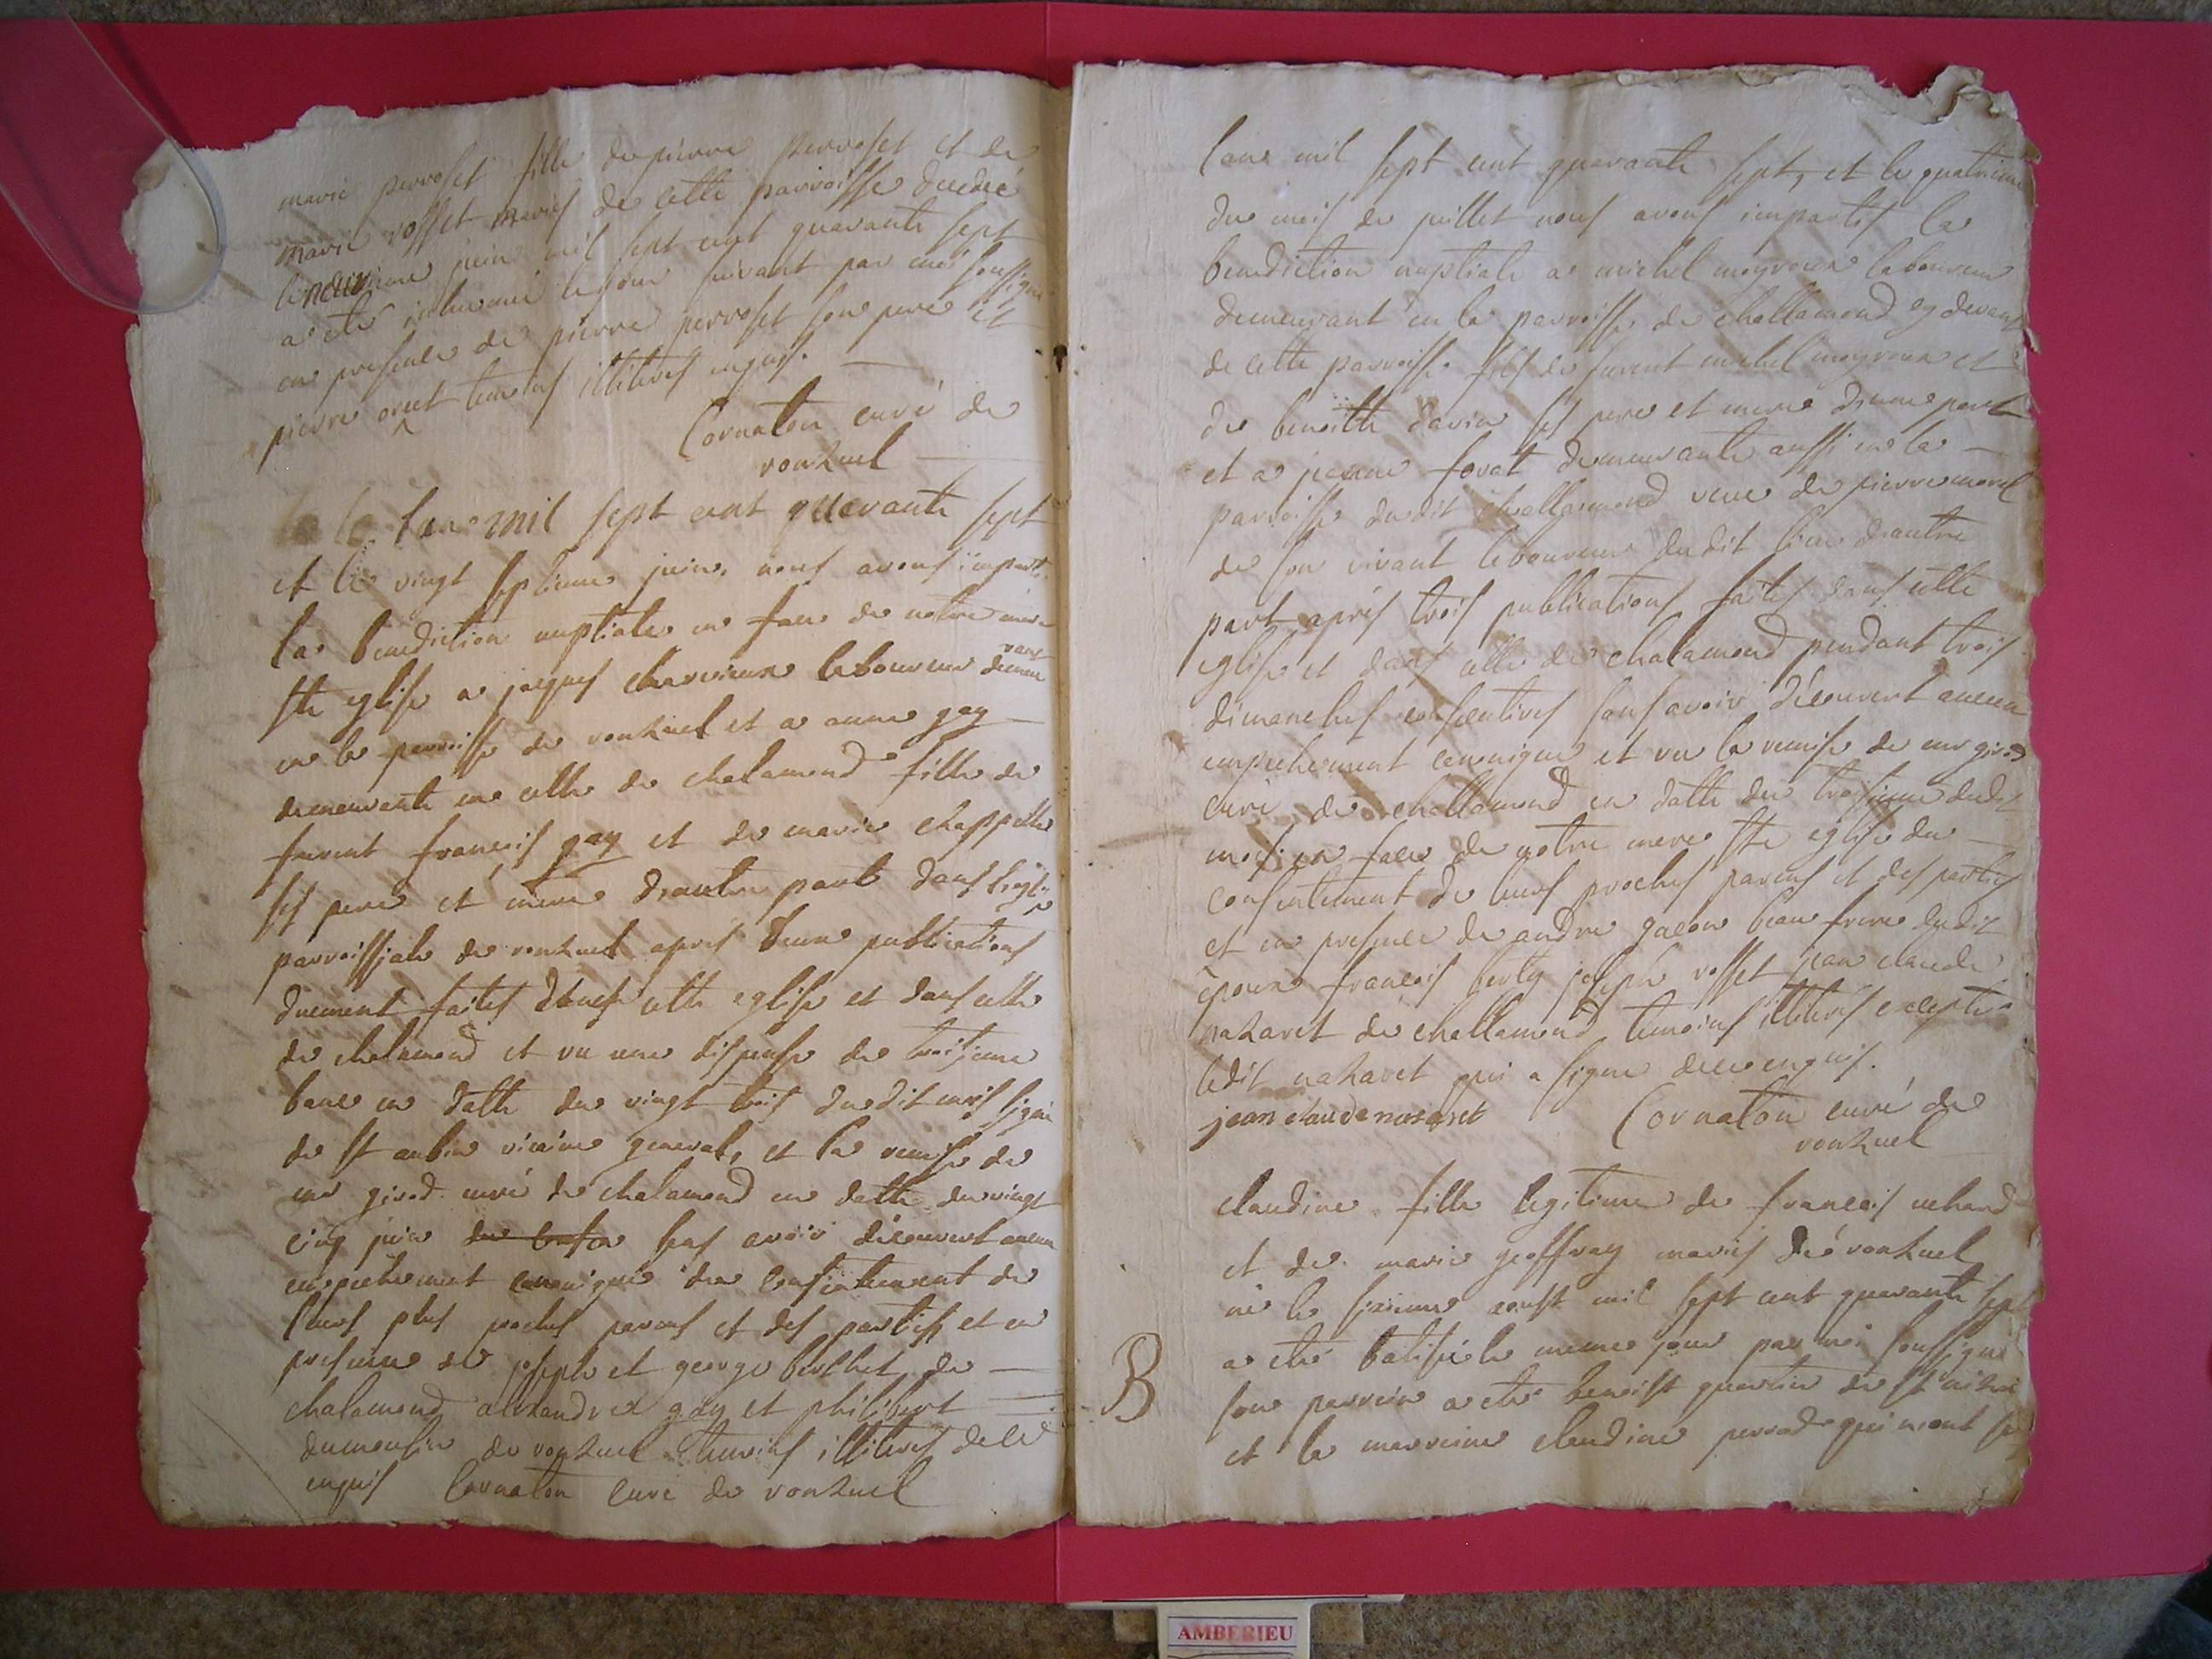 marie perroset fille de pierre perroset et de
marie rosset mariés de cette parroisse decedée
le neuvieme juin mil sept cent quarante sept
a eté inhumée le jour suivant par moi soussigné
en presence de pierre perroset son pere et
pierre temoins illiterés enquis.
Cornaton curé de
ronzuel
lan mil sept cent quarante sept
et le vingt septieme juin, nous avons imparti
la benediction nuptiale en face de notre mere
ste eglise a jacques charvieux laboureur demeu
rant
en la parroisse de ronzuel et a anne gay
demeurante en celle de chalamond fille de
furent francois gay et de marie chappelle
ses pere et mere d'autre part dans l'eglise
parroissjale de ronzuel apres deux publications
duement faites dans cette eglise et dans celle
de chalamond et vu une dispense du troisjeme
banc en datte du vingt trois dudit mois signé
de st aubin vicaire general, et la remise de
mr girod curé de chalamond en datte du vingt
cinq juin sans avoir découvert aucun
empechement canonique du consentement de
leurs plus proches parens et des parties et en
presence de joseph et george berthet de
chalamond alexandre gay et philibert
dumoulin de ronzuel temoins illiterés de ce
enquis Cornaton curé de ronzuel
lan mil sept cent quarante sept, et le quatrieme
du mois de juillet nous avons impartis la
benediction nuptiale a michel moyroux laboureur
demeurant en la parroisse de challamond cy devant
de cette parroisse fils de furent michel moyroux et
de benoitte ses pere et mere d'une part
et a jeanne forat demeurante aussi en la
parroisse dudit challamond veuve de pierre morel
de son vivant laboureur dudit lieu d'autre
part aprés trois publications faites dans cette
eglise et dans celle de chalamond pendant trois
dimanches consecutives sans avoir découvert aucun
empechement canonique et vu la remise de mr girod
curé de challamond en datte du troisjeme dudit
mois en face de notre mere ste eglise du
consentement de leurs proches parens et des parties
et en presence de andre gacon beau frere dudit
époux francois berty joseph rosset jean claude
nazaret de challamond temoins illiterés excepté
ledit nazaret qui a signé de ce enquis.
jean claude nazaret Cornaton curé de
ronzuel
claudine fille legitime de francois
et de marie geoffray mariés de ronzuel
née le sixieme aoust mil sept cent quarante sept
a eté batisée le meme jour par moi soussigné
B
son parrein a eté benoist quartin de st nizier
et la marreine claudine perrod qui n'ont
AMBERIEU